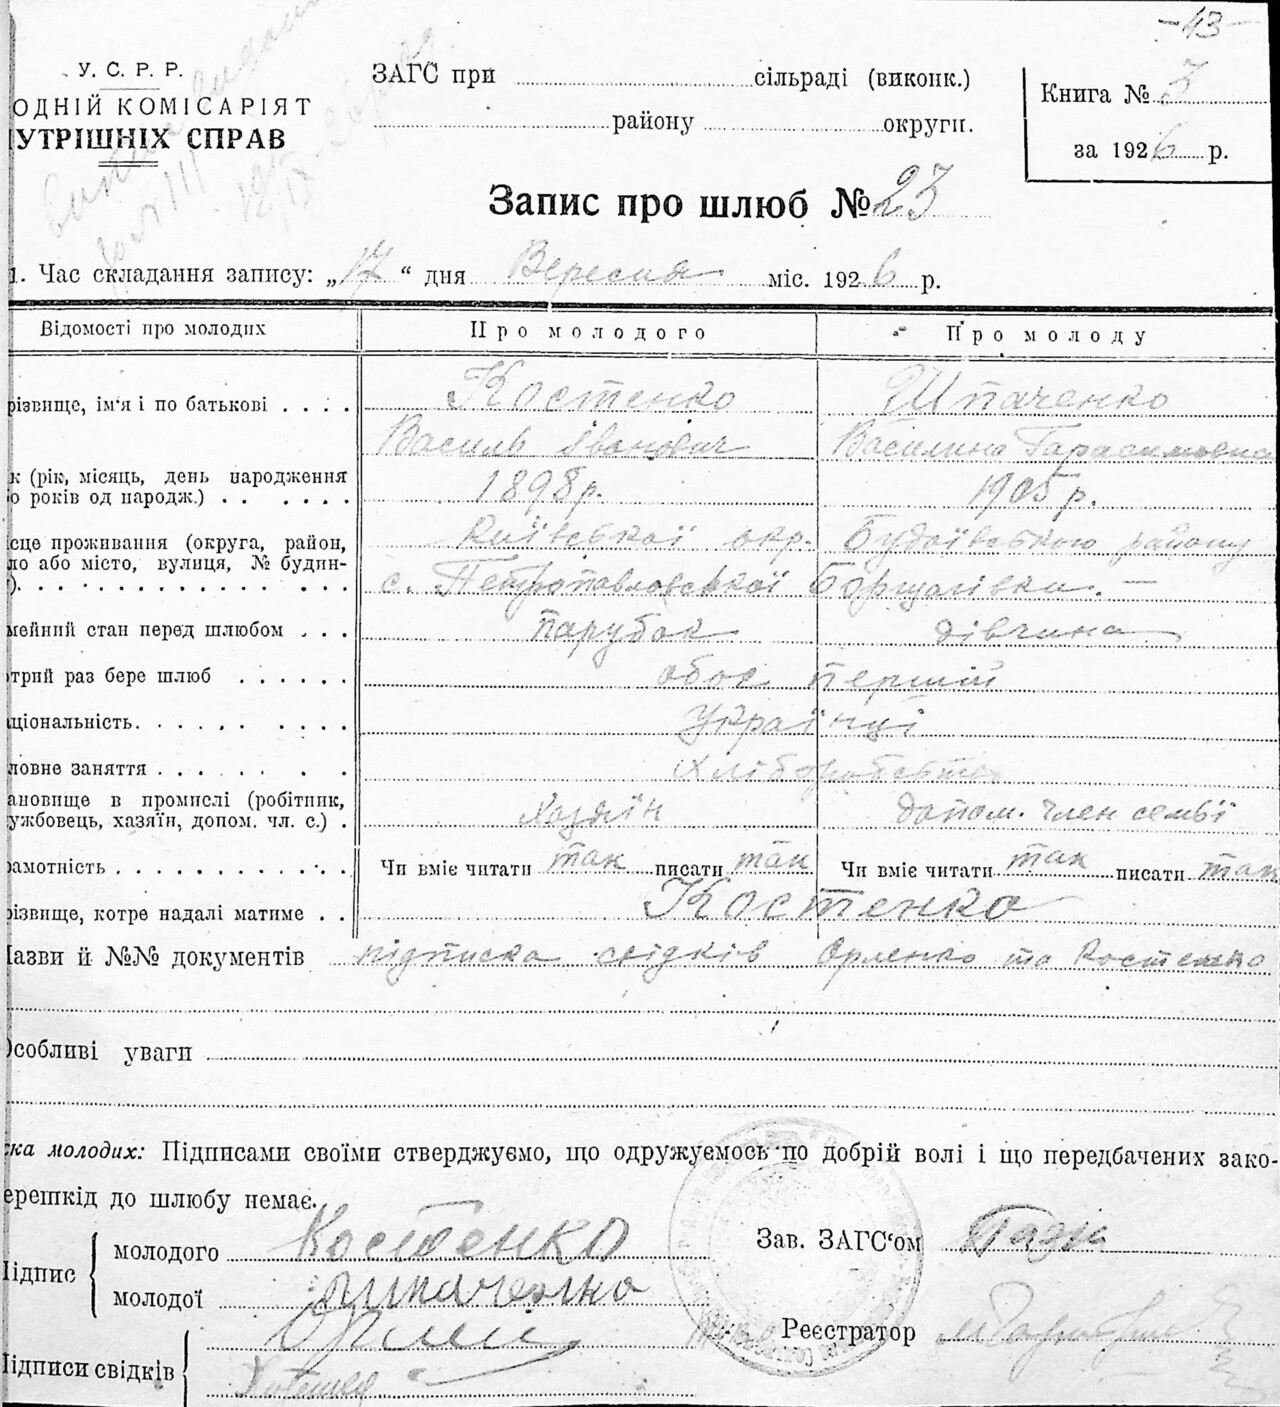 -43-
У. С. Р. Р.
ОДНІЙ КОМІСАРІЯТ
УТРІШНІХ СПРАВ
ЗАГС при сільраді (виконк.)
району округи.
Книга № 3
за 1926 р.
Запис про шлюб № 23
1. Час складання запису: „17“ дня Вересня міс. 1926 р.
Відомості про молодих Про молодого Про молоду
різвище, ім'я і по батькові . . . . Костенко Шпаченко
Василь Іванович Василина Гарасимовна
к (рік, місяць, день народження
о років од народж.) . . . . . . 1898 р. 1905 р.
ісце проживання (округа, район, Київської окр. Будаївського району
ло або місто, вулиця, № будин-
). . . . . . . . . . . . . . . с. Петропавловської Борщагівки. —
мейний стан перед шлюбом . . . парубок дівчина
отрий раз бере шлюб . . . . . . обоє перший
аціональність. . . . . . . . . . Українці
ловне заняття . . . . . . . . Хліборобство
ановище в промислі (робітник,
ужбовець, хазяїн, допом. чл. с.) . Хазяїн допом. член семьї
рамотність . . . . . . . . . . . Чи вміє читати так писати так Чи вміє читати так писати так
різвище, котре надалі матиме . . Костенко
Назви й №№ документів підписка свідків Орленко та Костенко
Особливі уваги
ска молодих: Підписами своїми стверджуємо, що одружуємось по добрій волі і що передбачених зако-
ерешкід до шлюбу немає.
Підпис молодого Костенко
молодої Шпаченко
Зав. ЗАГС'ом
Реєстратор
Підписи свідків